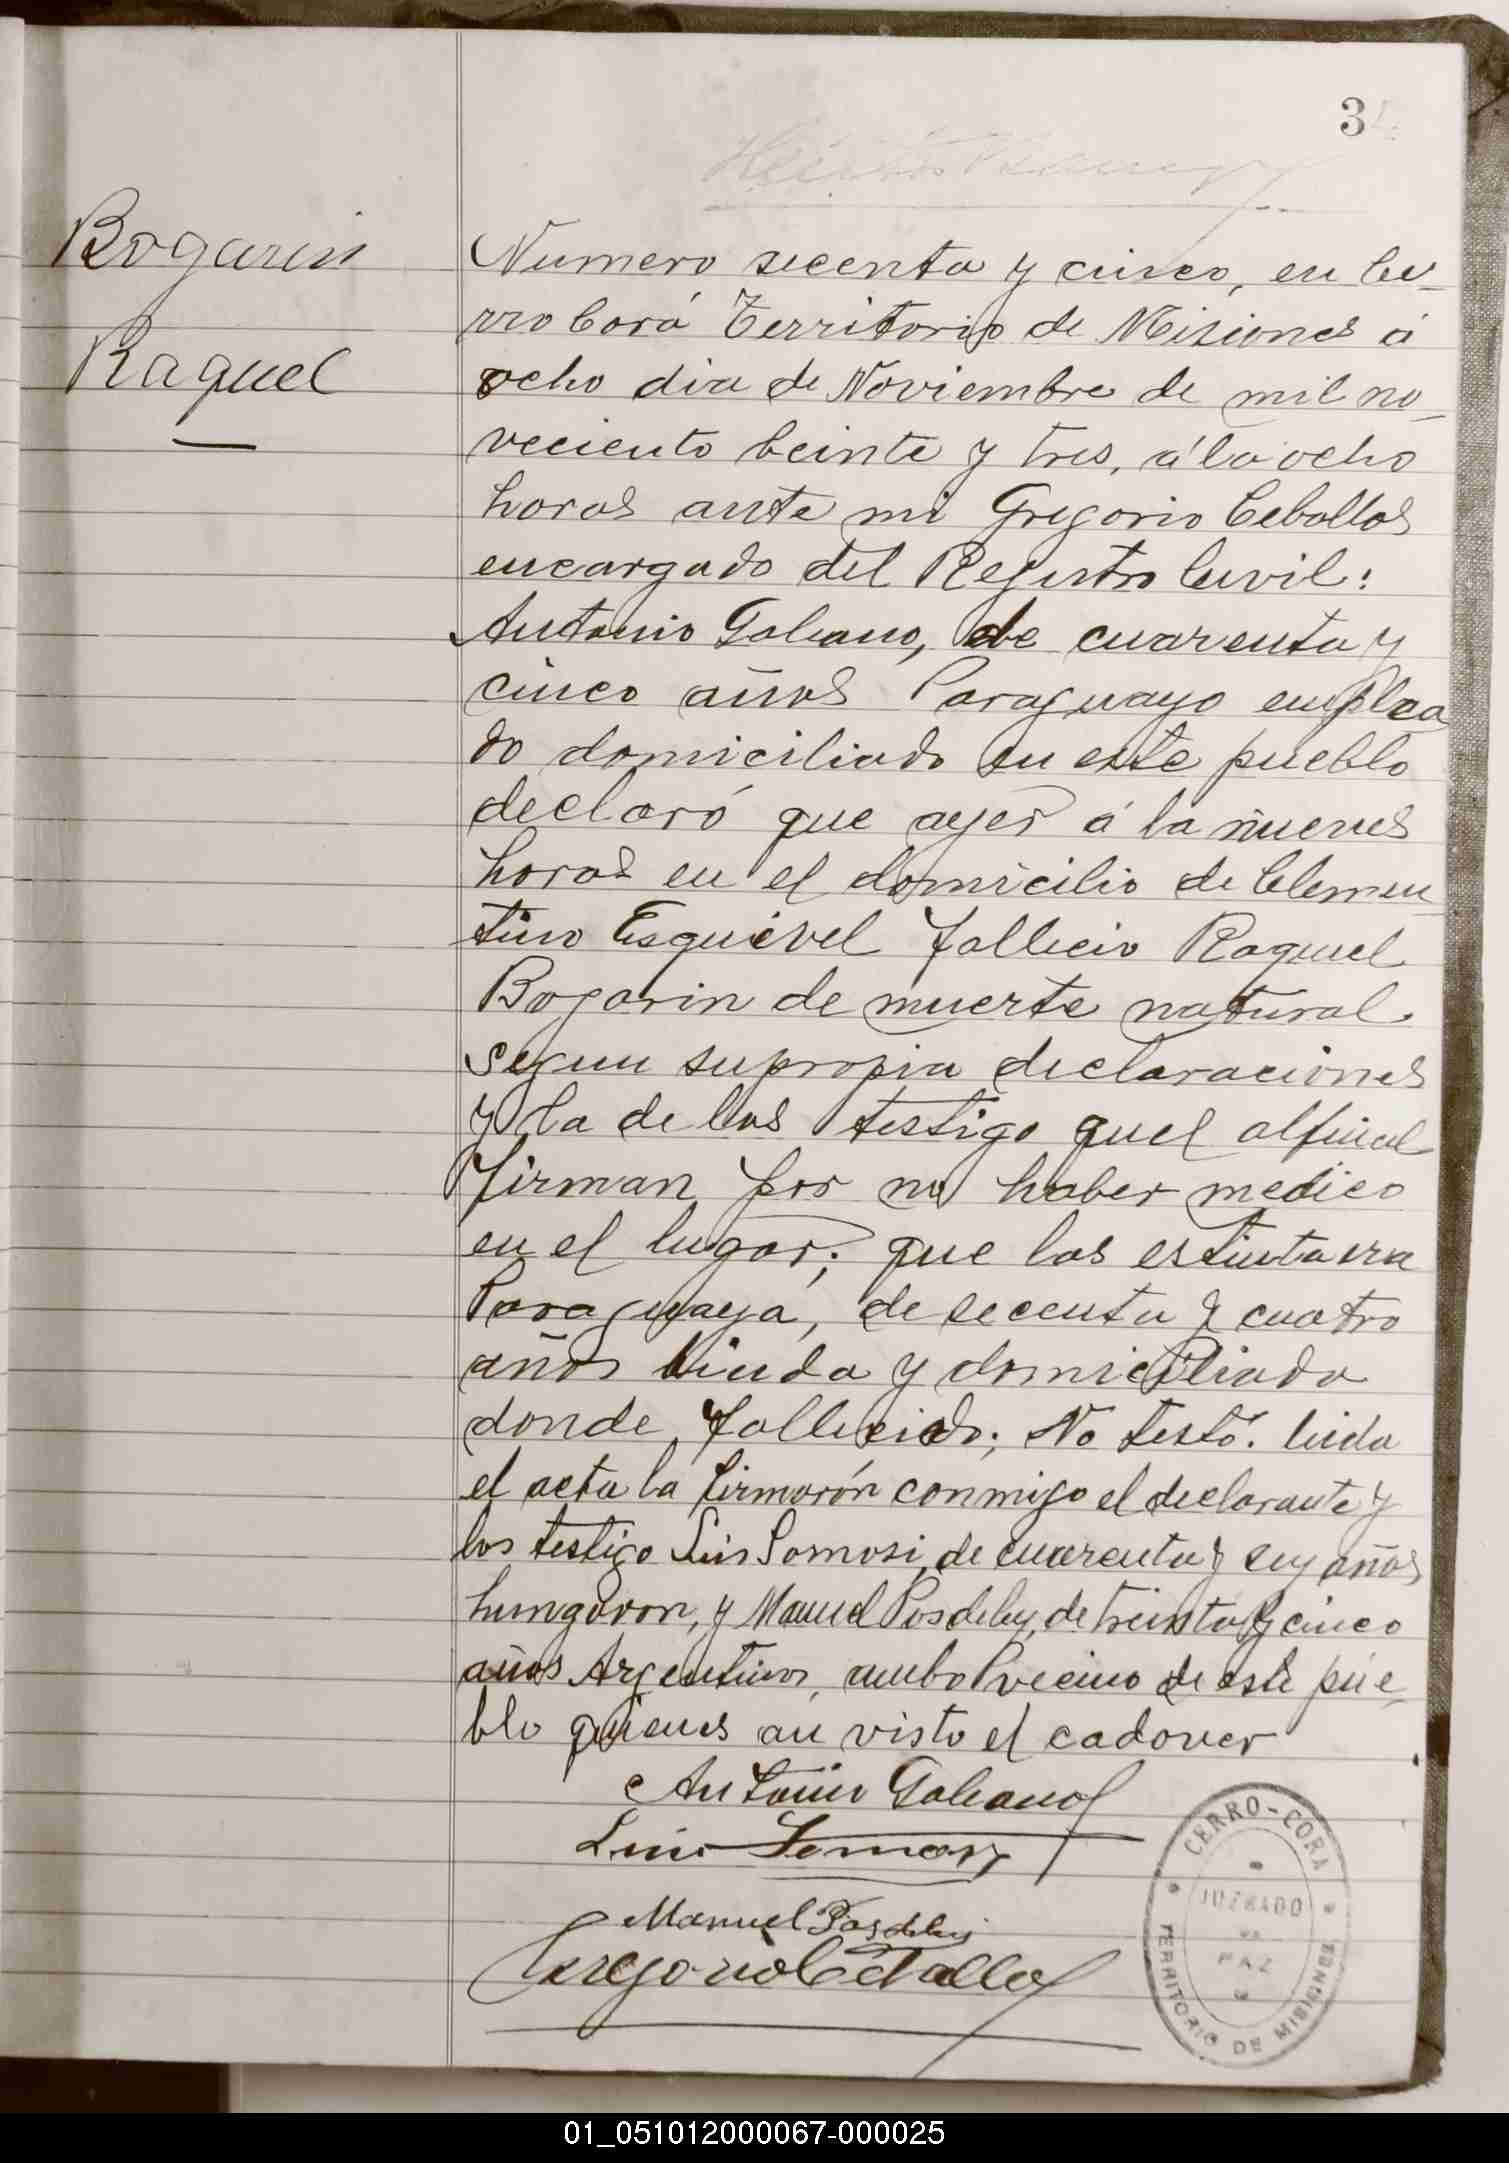 34
Bogarin
Raquel
Numero secenta y cinco, en Ce-
rro Corá Territorio de Misiones á
ocho dia de Noviembre de mil no-
veciento beinte y tres, á la ocho
horas ante mi Gregorio Ceballos
encargado del Registro Civil:
Antonio Galeano, de cuarenta y
cinco años Paraguayo emplea
do domiciliado en este pueblo
declaró que ayer á la nueves
horas en el domicilio de Clemen-
tino Esquivel fallecio Raquel
Bogarin de muerte natural
segun su propia declaraciones
y la de los testigo quel al final
firman por no haber medico
en el lugar; que las estinta era
Paraguaya, de secenta y cuatro
años biuda y domiciliada
donde fallecido; No testó. leida
el acta la firmarón conmigo el declarante y
los testigo Luis Somosi, de cuarenta y sey años
hungaron, y Manuel Posdeley, de treinta y cinco
años Argentinos, ambo vecino de este pue-
blo quienes an visto el cadaver
Antonio Galeano
Luis
Manuel
Gregorio Ceballos
CERRO-CORA
JUZGADO
DE
PAZ
TERRITORIO DE MISIONES
01_051012000067-000025